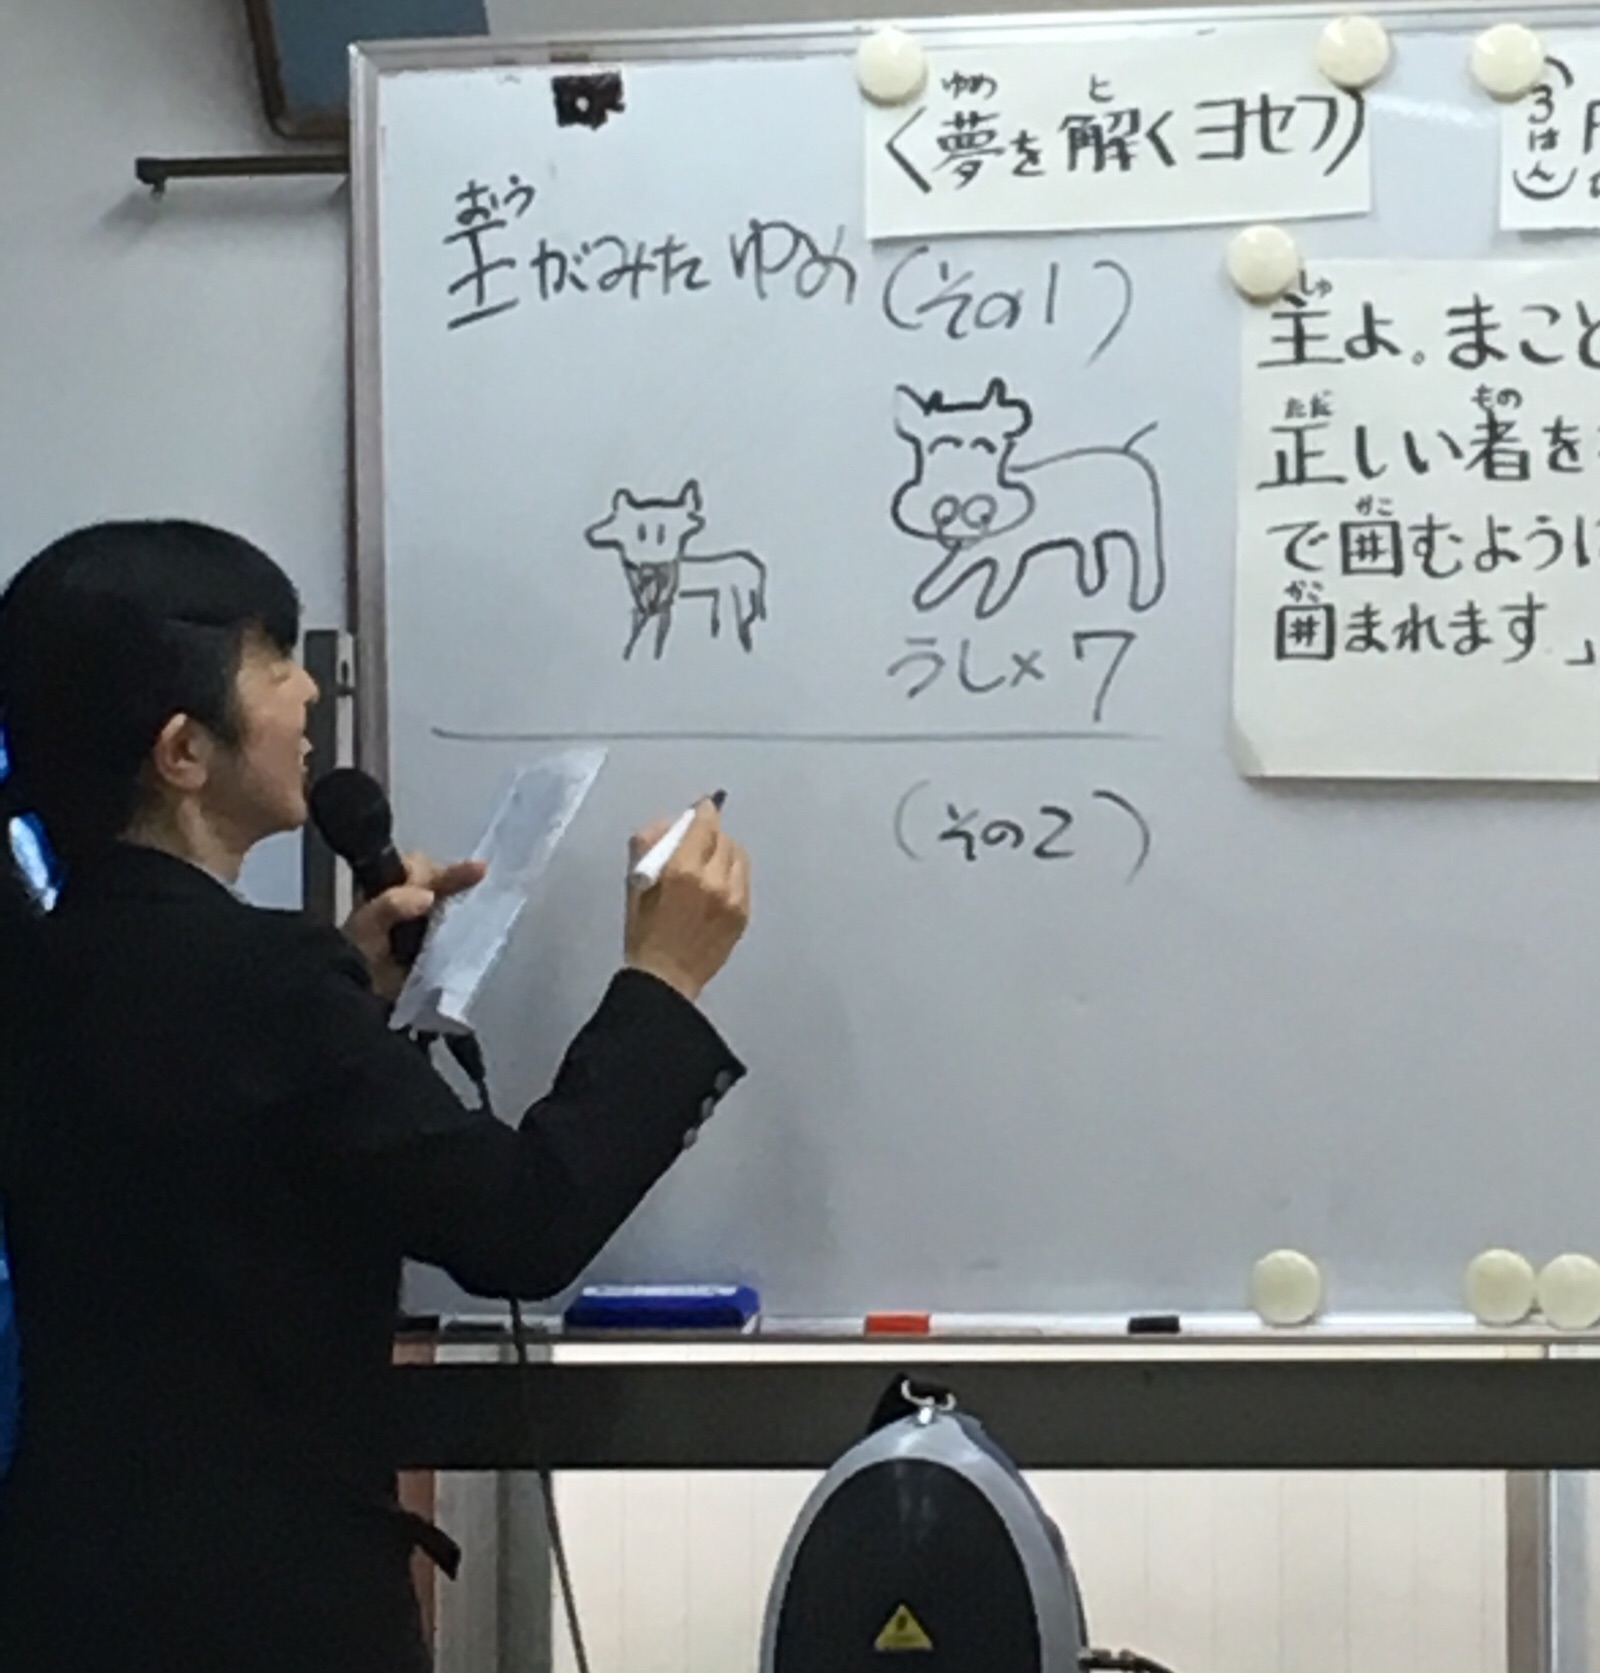 ゆめ と
〈夢を解くヨセフ〉
おう
王がみたゆめ(その1)
うし×7
(その2)
しゅ
主よ。まこと
ただ もの
正しい者を
かこ
で囲むように
かこ
囲まれます」
(3はん)